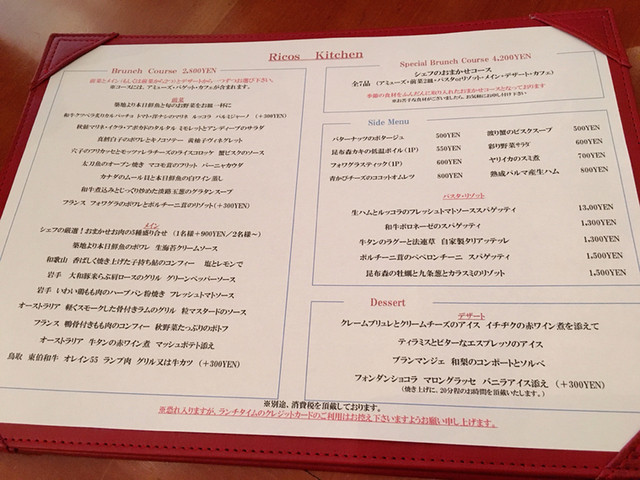 Ricos Kitchen
Brunch Course 2,800YEN
前菜とメインもしくは前菜からひとつとデザートから一つずつお選び下さい。
※コースには、アミューズ・バゲット・カフェが含まれます。
前菜
築地より本日鮮魚と旬のお野菜をお鍋一杯に
和牛ケンペラ炙りカルパッチョ トマト・茄子のマリネ ルッコラ パルミジャーノ (+300YEN)
秋鯖マリネ・イクラ・アボカドのタルタル ミモレットとアンディーブのサラダ
真鱈白子のポワレとキノコソテー 黄柚子ヴィネグレット
穴子のフリカッセとモッツァレラチーズのライスコロッケ 蟹ビスクのソース
太刀魚のオーブン焼き マコモ茸のフリット バーニャカウダ
カナダのムール貝と本日鮮魚の白ワイン蒸し
和牛煮込みとじっくり炒めた淡路玉葱のグラタンスープ
フランス フォワグラのポワレとポルチーニ茸のリゾット(+300YEN)
メイン
シェフの厳選!おまかせお肉の5種盛り合せ (1名様+900YEN/2名様~)
築地より本日鮮魚のポワレ 生海苔クリームソース
和歌山 香ばしく焼き上げた子持ち鮎のコンフィー 塩とレモンで
岩手 大和豚米らぶ肩ロースのグリル グリーンペッパーソース
岩手 いわい鶏もも肉のハーブパン粉焼き フレッシュトマトソース
オーストラリア 軽くスモークした骨付きラムのグリル 粒マスタードのソース
フランス 鴨骨付きもも肉のコンフィー 秋野菜たっぷりのポトフ
オーストラリア 牛タンの赤ワイン煮 マッシュポテト添え
鳥取 東伯和牛 オレイン55 ランプ肉 グリル又は牛カツ (+300YEN)
Special Brunch Course 4,200YEN
シェフのおまかせコース
全7品 (アミューズ・前菜2皿・パスタorリゾット・メイン・デザート・カフェ)
※季節の食材をふんだんに取り入れたおまかせコースとなっております
※お苦手な食材がございましたら、お気軽にお申し付け下さい
Side Menu
バターナッツのポタージュ 500YEN
昆布森カキの低温ボイル(1P) 550YEN
フォワグラスティック(1P) 600YEN
青かびチーズのココットオムレツ 800YEN
渡り蟹のビスクスープ 500YEN
彩り野菜サラダ 600YEN
ヤリイカのスミ煮 700YEN
熟成パルマ産生ハム 800YEN
パスタ・リゾット
生ハムとルッコラのフレッシュトマトソーススパゲッティ 13,00YEN
和牛ボロネーゼのスパゲッティ 1,300YEN
牛タンのラグーと法連草 自家製タリアッテッレ 1,300YEN
ポルチーニ茸のペペロンチーニ スパゲッティ 1,500YEN
昆布森の牡蠣と九条葱とカラスミのリゾット 1,500YEN
Dessert
デザート
クレームブリュレとクリームチーズのアイス イチヂクの赤ワイン煮を添えて
ティラミスとビターなエスプレッソのアイス
ブランマンジェ 和梨のコンポートとソルベ
フォンダンショコラ マロングラッセ バニラアイス添え (+300YEN)
(焼き上げに、20分程のお時間を頂戴いたします。)
※別途、消費税を頂戴しております。
※恐れ入りますが、ランチタイムのクレジットカードのご利用はお控え下さいますようお願い申し上げます。